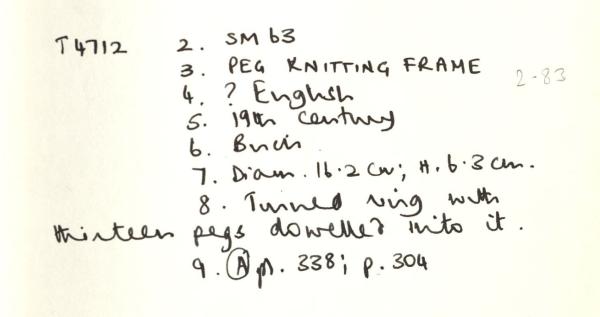 T4712 2. SM 63
3. PEG KNITTING FRAME
2-83
4. ? English
5. 19th century
6. Birch
7. Diam. 16.2 cm; H. 6.3 cm.
8. Turned ring with
thirteen pegs dowelled into it.
9. (A) pl. 338; p. 304